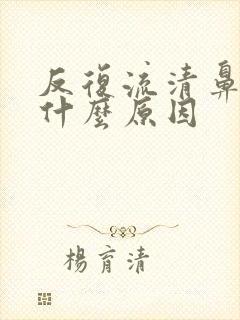 反復流清鼻
什麼原因
楊育清